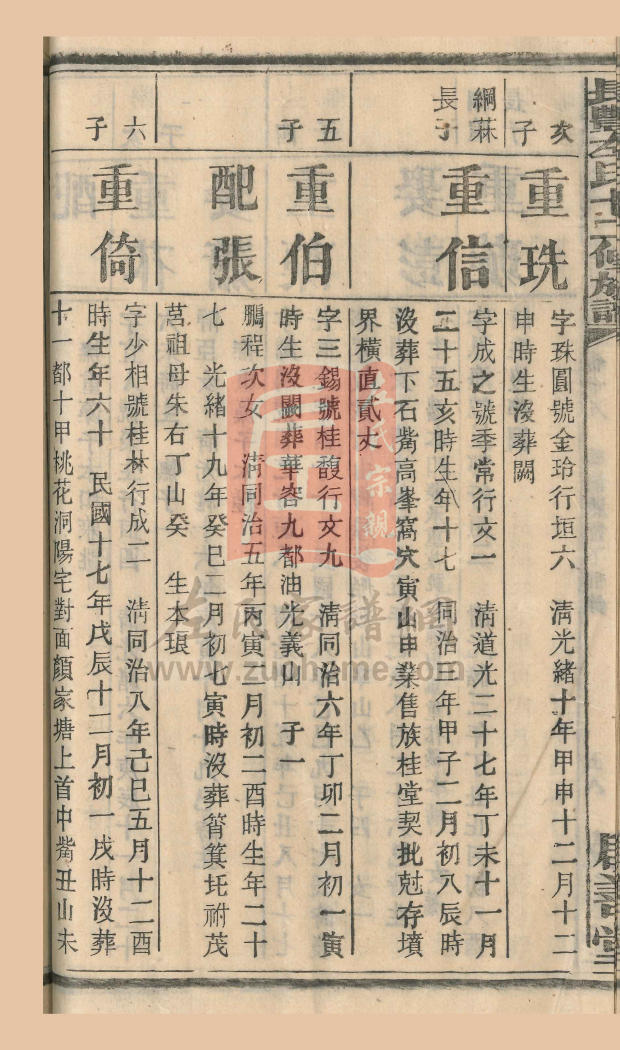 長豐左氏十二修族譜
亥子
重珗
字珠圓號金玲行垣六　清光緒十年甲申十二月十二
申時生沒葬闕
綱菻長子
重信
字成之號季常行文一　清道光二十七年丁未十一月
二十五亥時生年十七　同治三年甲子二月初八辰時
沒葬下石觜高峯窩穴寅山申業售族桂堂契批尅存墳
界橫直貳丈
五子
重伯
字三錫號桂馥行文九　清同治六年丁卯二月初一寅
時生沒闕葬華容九都油光義山　子一
配張
鵬程次女　清同治五年丙寅二月初二酉時生年二十
七　光緒十九年癸巳二月初七寅時沒葬筲箕坨祔茂
莒祖母朱右丁山癸　生本珢
六子
重倚
字少相號桂林行成二　清同治八年己巳五月十二酉
時生年六十　民國十七年戊辰十二月初一戌時沒葬
十一都十甲桃花洞陽宅對面顏家塘上首中觜丑山未
左氏宗親
左氏家譜網
www.zuohome.com